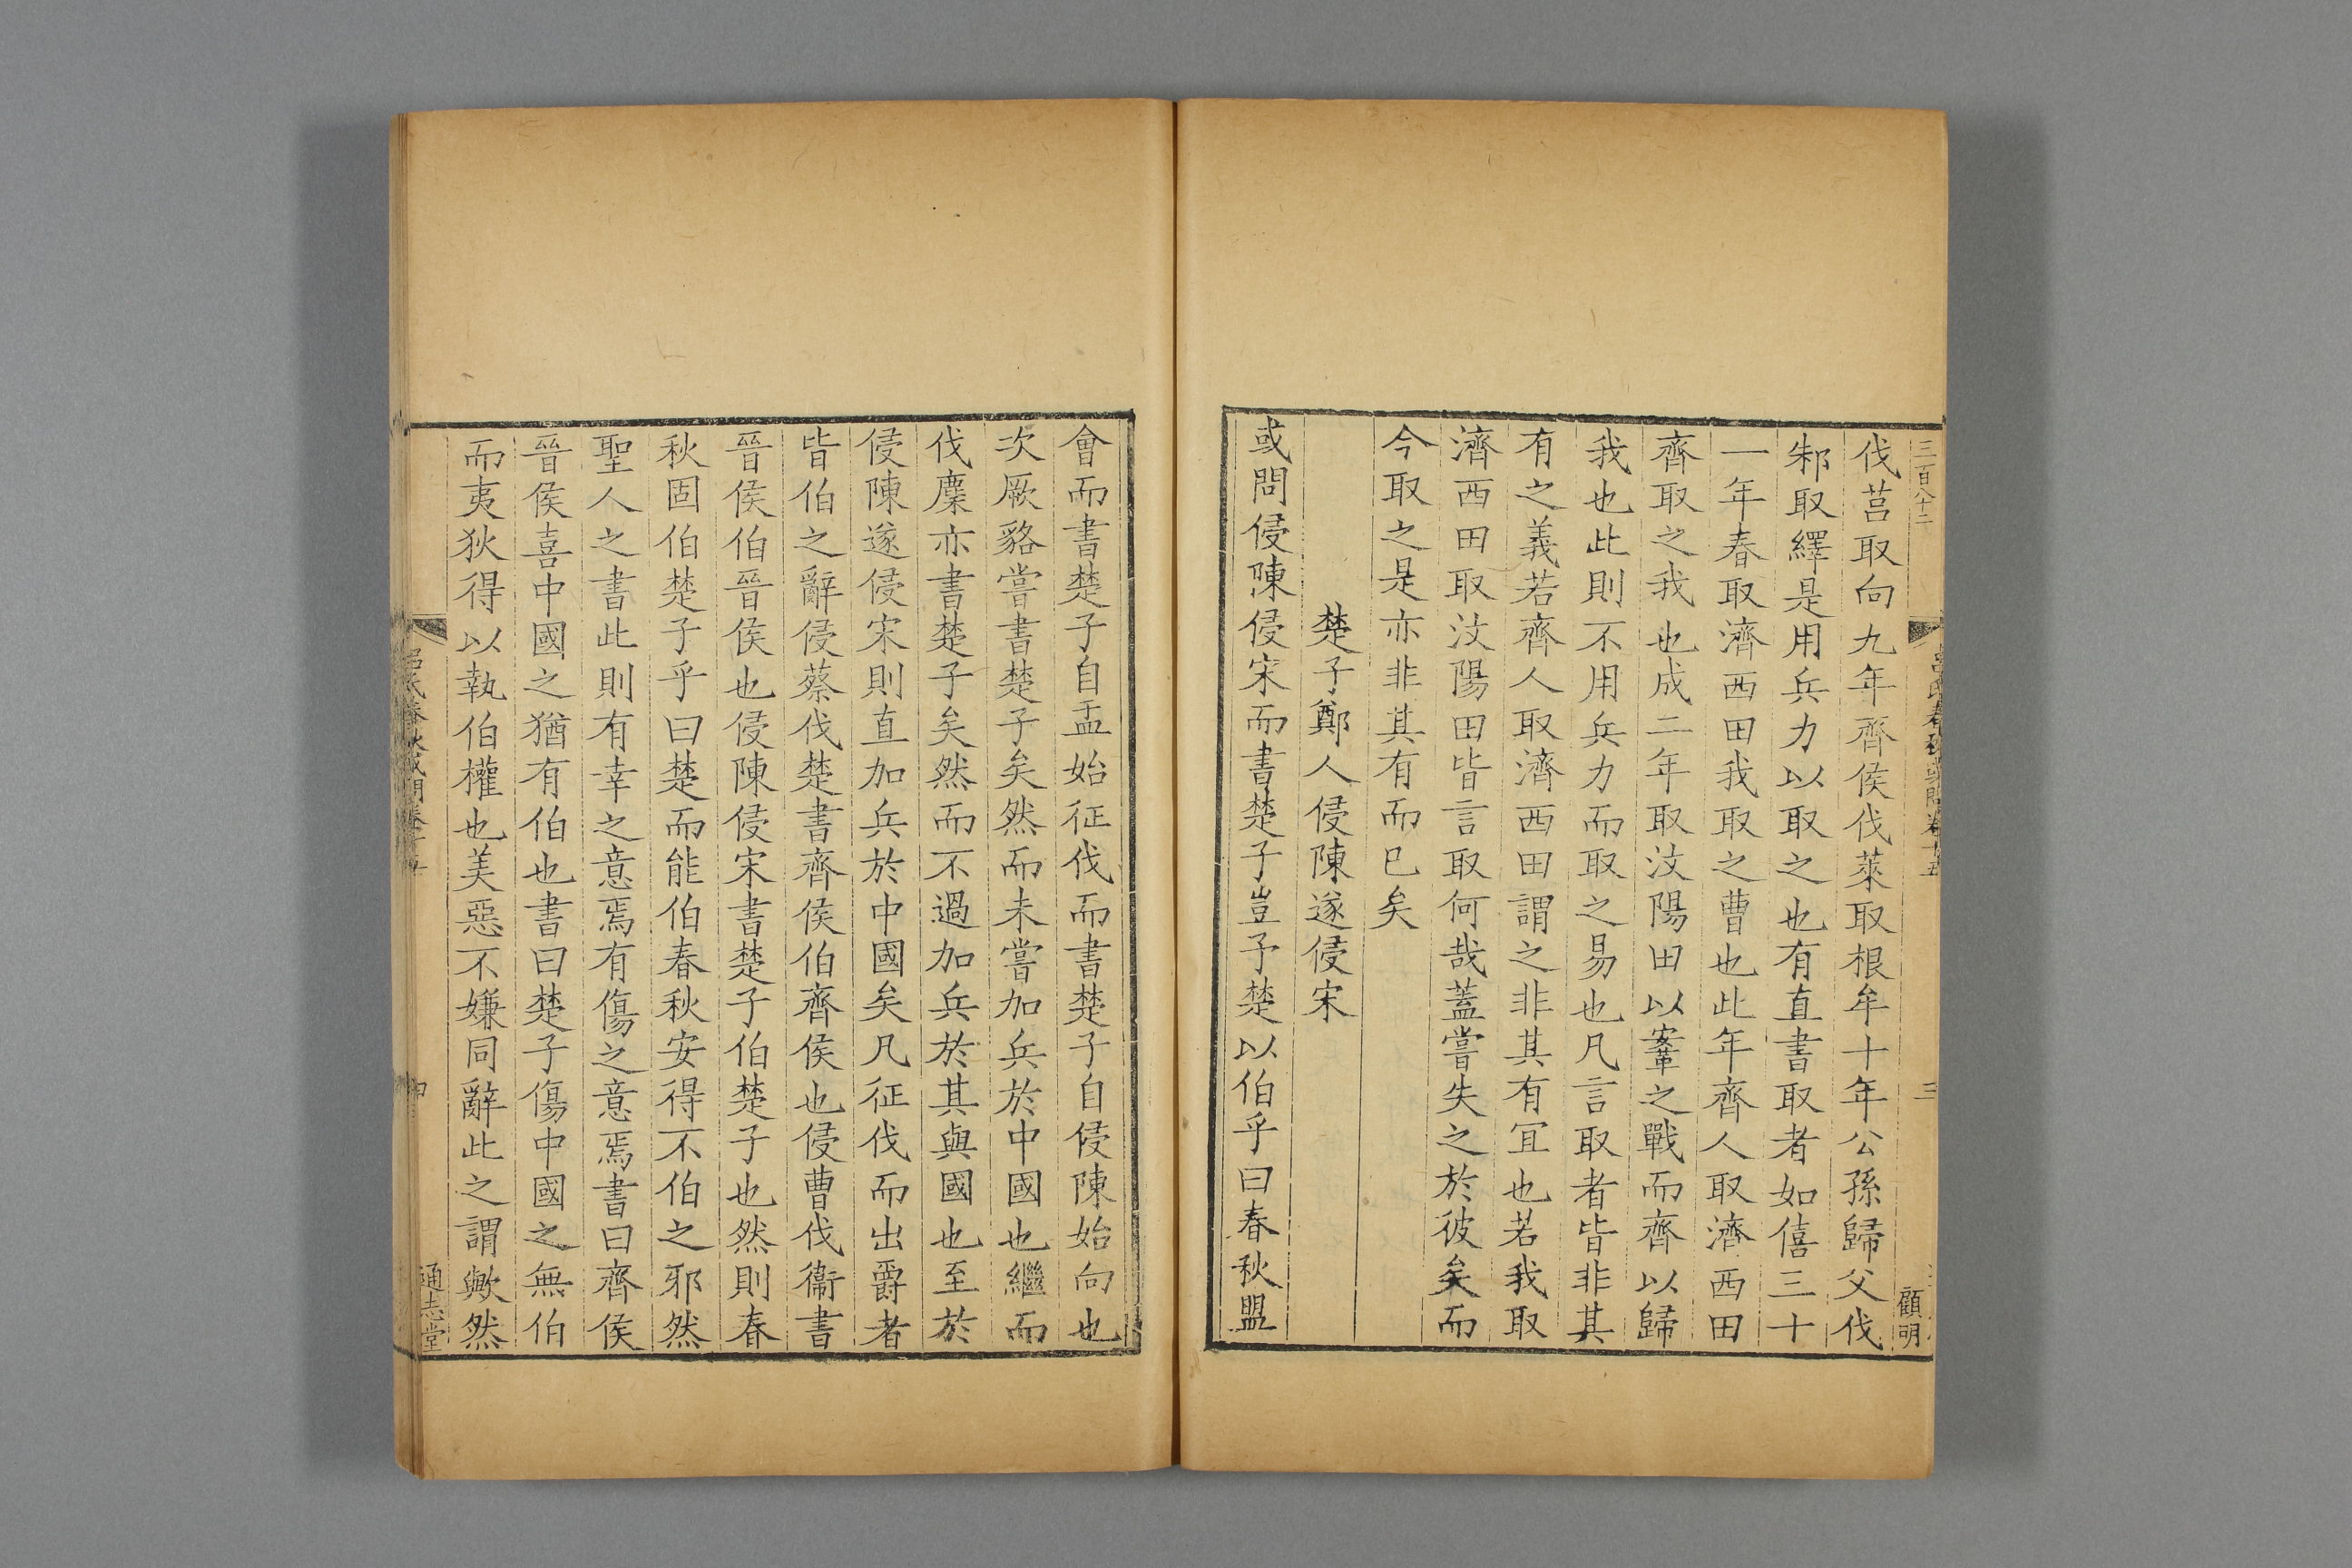 三百八十二
呂氏春秋或問卷十五
三
顧明
伐莒取向九年齊侯伐萊取根牟十年公孫歸父伐
邾取繹是用兵力以取之也有直書取者如僖三十
一年春取濟西田我取之曹也此年齊人取濟西田
齊取之我也成二年取汶陽田以鞌之戰而齊以歸
我也此則不用兵力而取之易也凡言取者皆非其
有之義若齊人取濟西田謂之非其有冝也若我取
濟西田取汶陽田皆言取何哉蓋嘗失之於彼矣而
今取之是亦非其有而已矣
楚子鄭人侵陳遂侵宋
或問侵陳侵宋而書楚子豈予楚以伯乎曰春秋盟
會而書楚子自盂始征伐而書楚子自侵陳始向也
次厥貉嘗書楚子矣然而未嘗加兵於中國也繼而
伐麇亦書楚子矣然而不過加兵於其與國也至於
侵陳遂侵宋則直加兵於中國矣凡征伐而出爵者
皆伯之辭侵蔡伐楚書齊侯伯齊侯也侵曹伐衞書
晉侯伯晉侯也侵陳侵宋書楚子伯楚子也然則春
秋固伯楚子乎曰楚而能伯春秋安得不伯之邪然
聖人之書此則有幸之意焉有傷之意焉書曰齊侯
晉侯喜中國之猶有伯也書曰楚子傷中國之無伯
而夷狄得以執伯權也美惡不嫌同辭此之謂歟然
呂氏春秋或問卷十五
四
通志堂